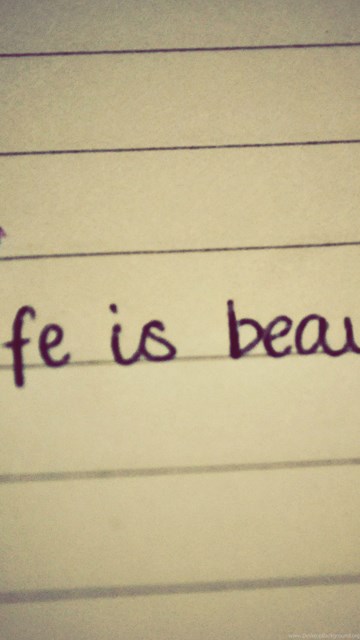 fe is beau